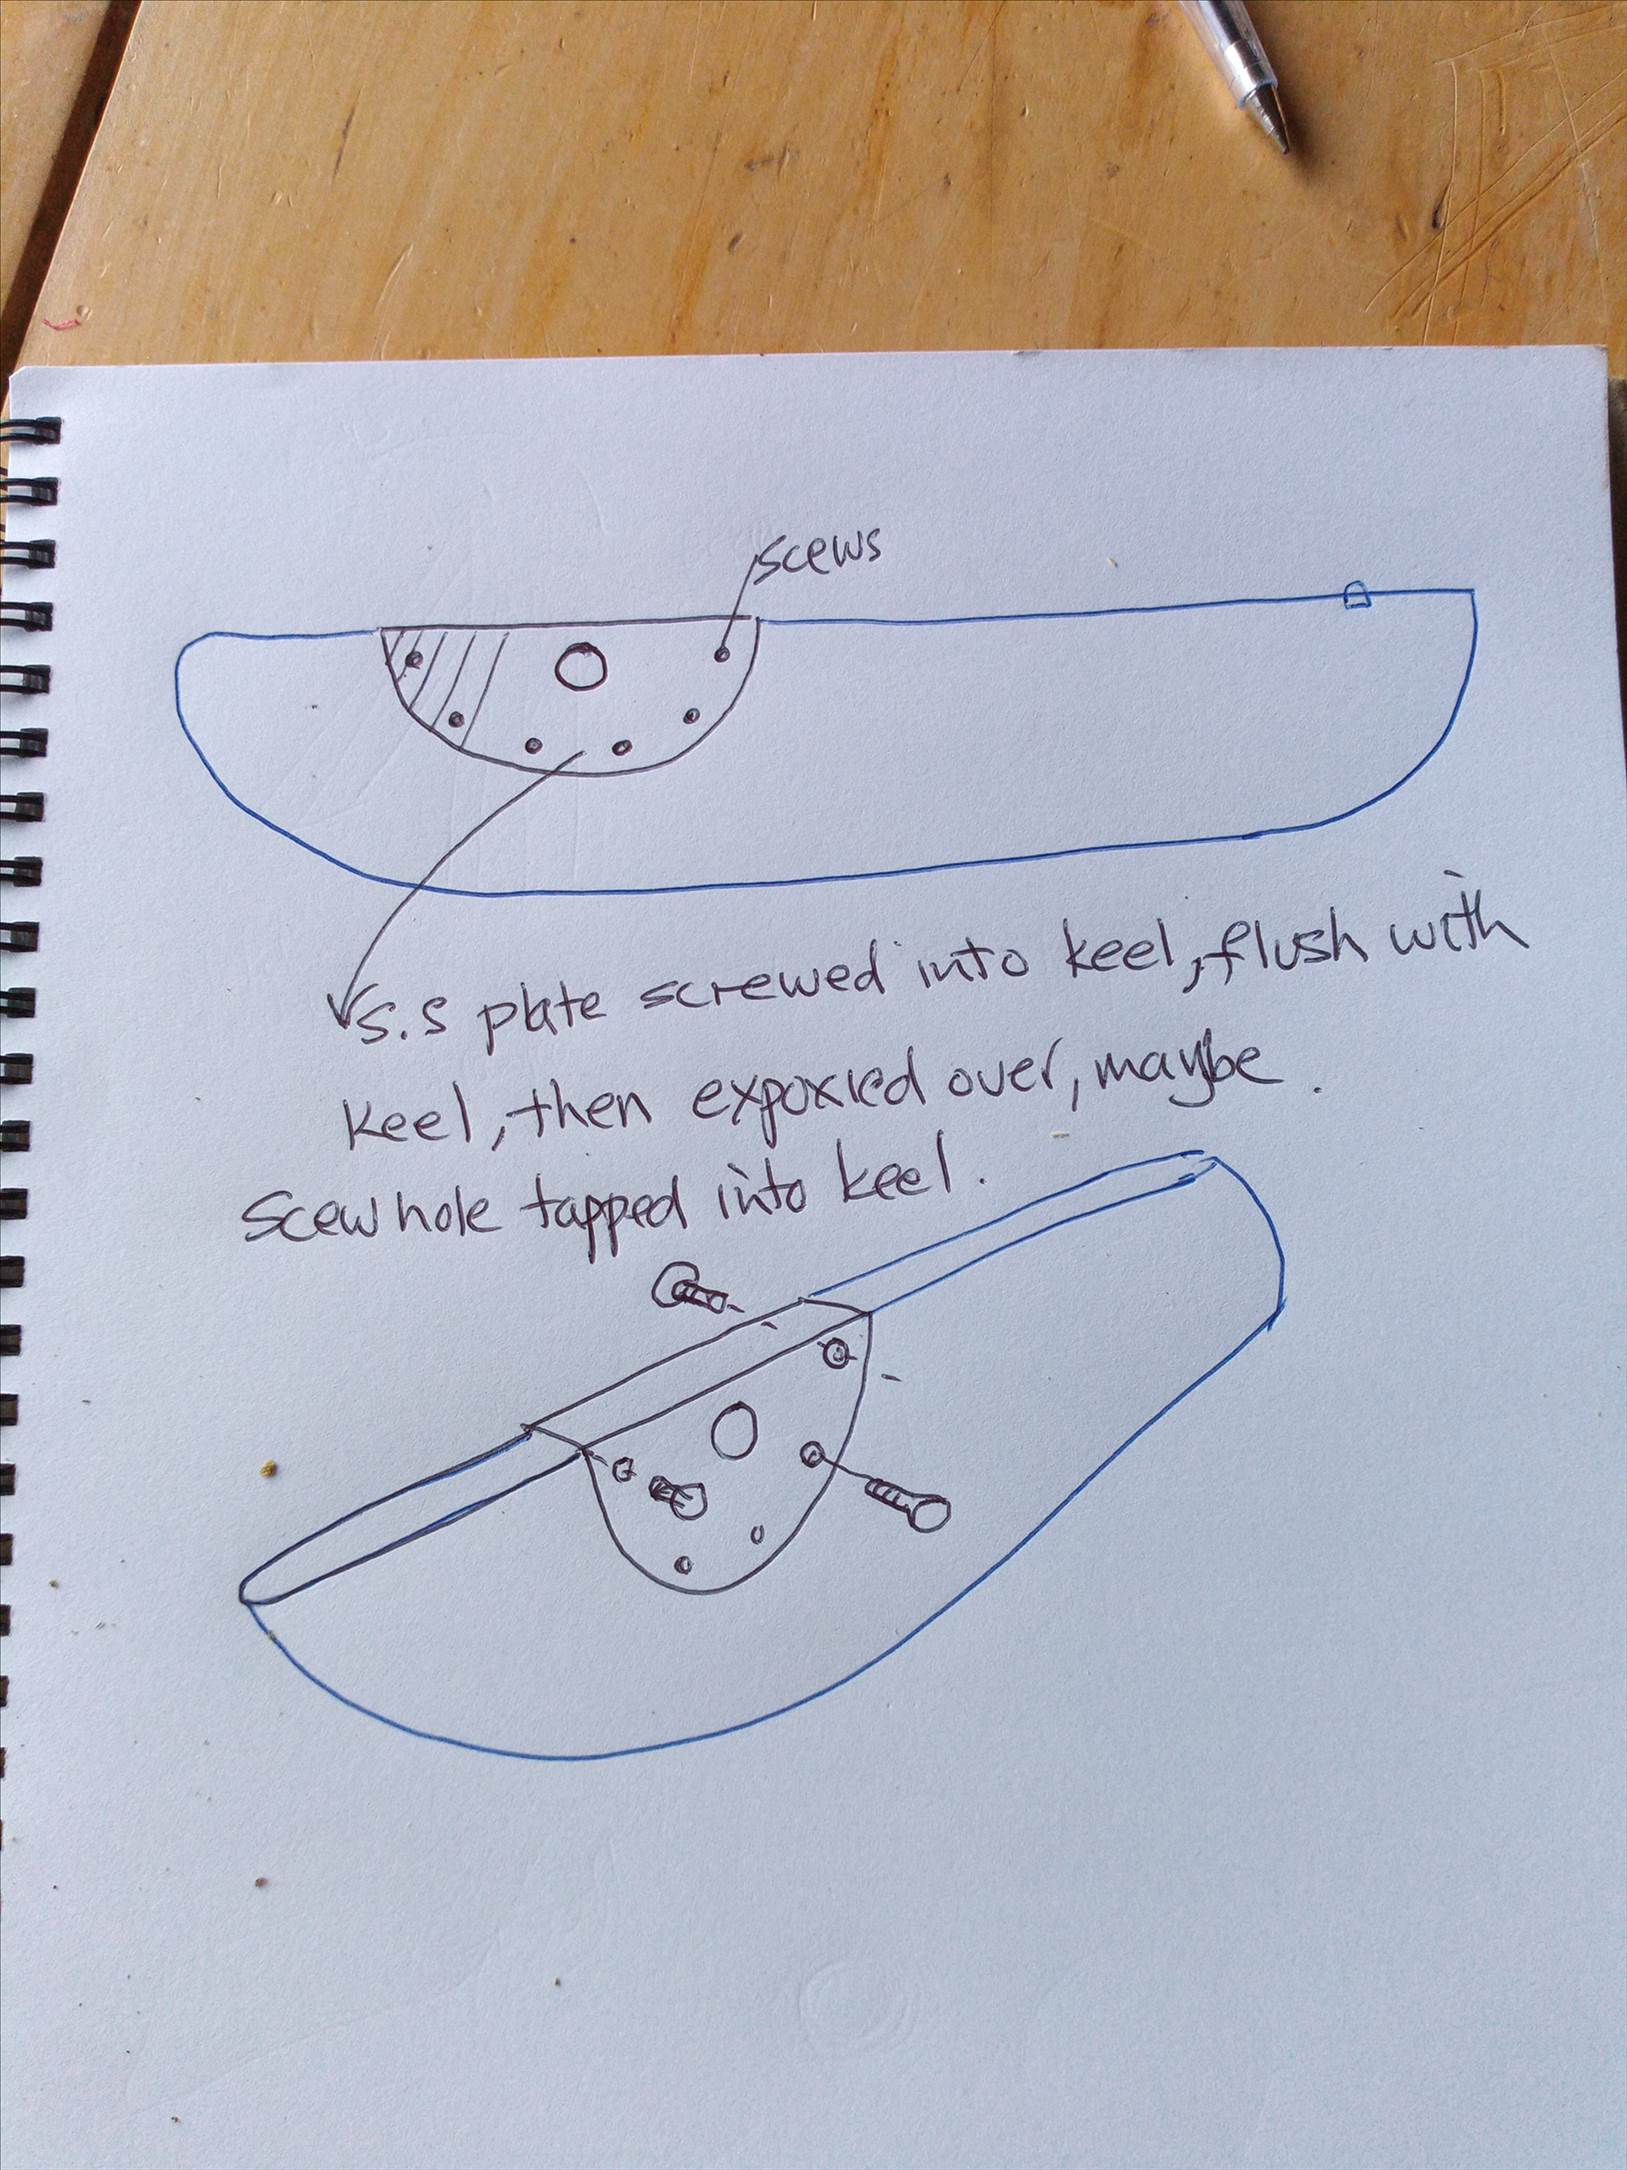 scews
S.S plate screwed into keel, flush with
keel, then expoxied over, maybe.
Scew hole tapped into keel.